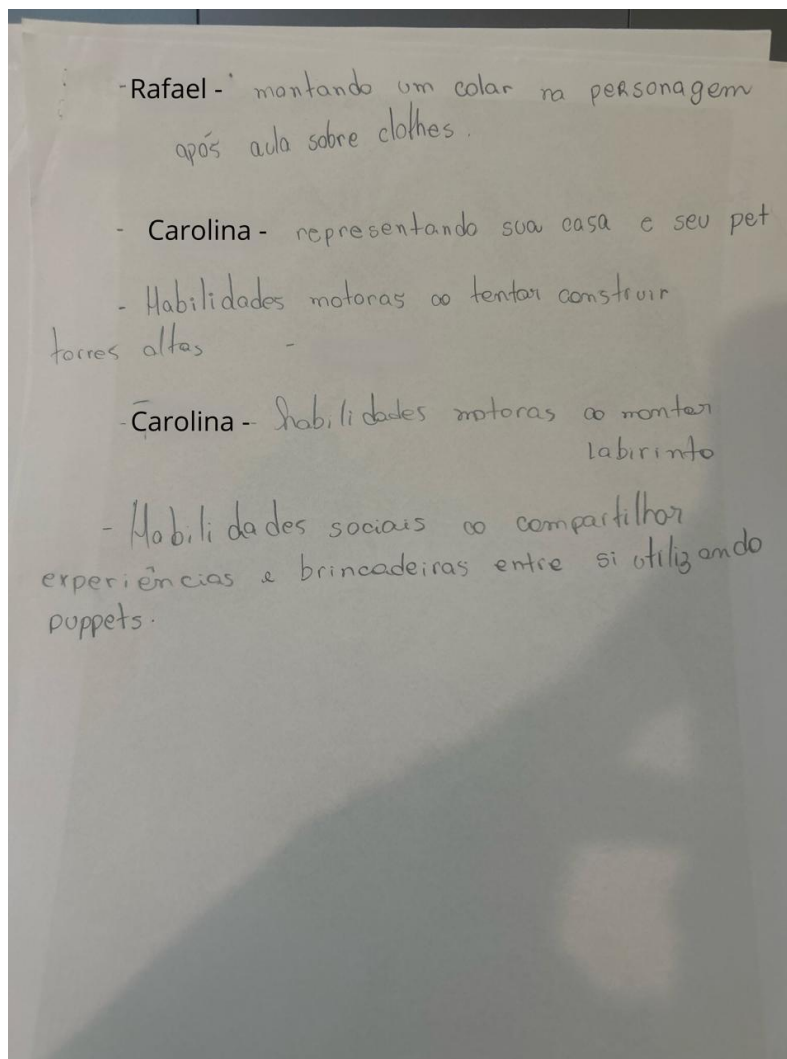 - Rafael - montando um colar na personagem
após aula sobre clothes.
- Carolina - representando sua casa e seu pet
- Habilidades motoras ao tentar construir
torres altas -
- Carolina - habilidades motoras ao montar
labirinto
- Habilidades sociais ao compartilhar
experiências e brincadeiras entre si utilizando
puppets.